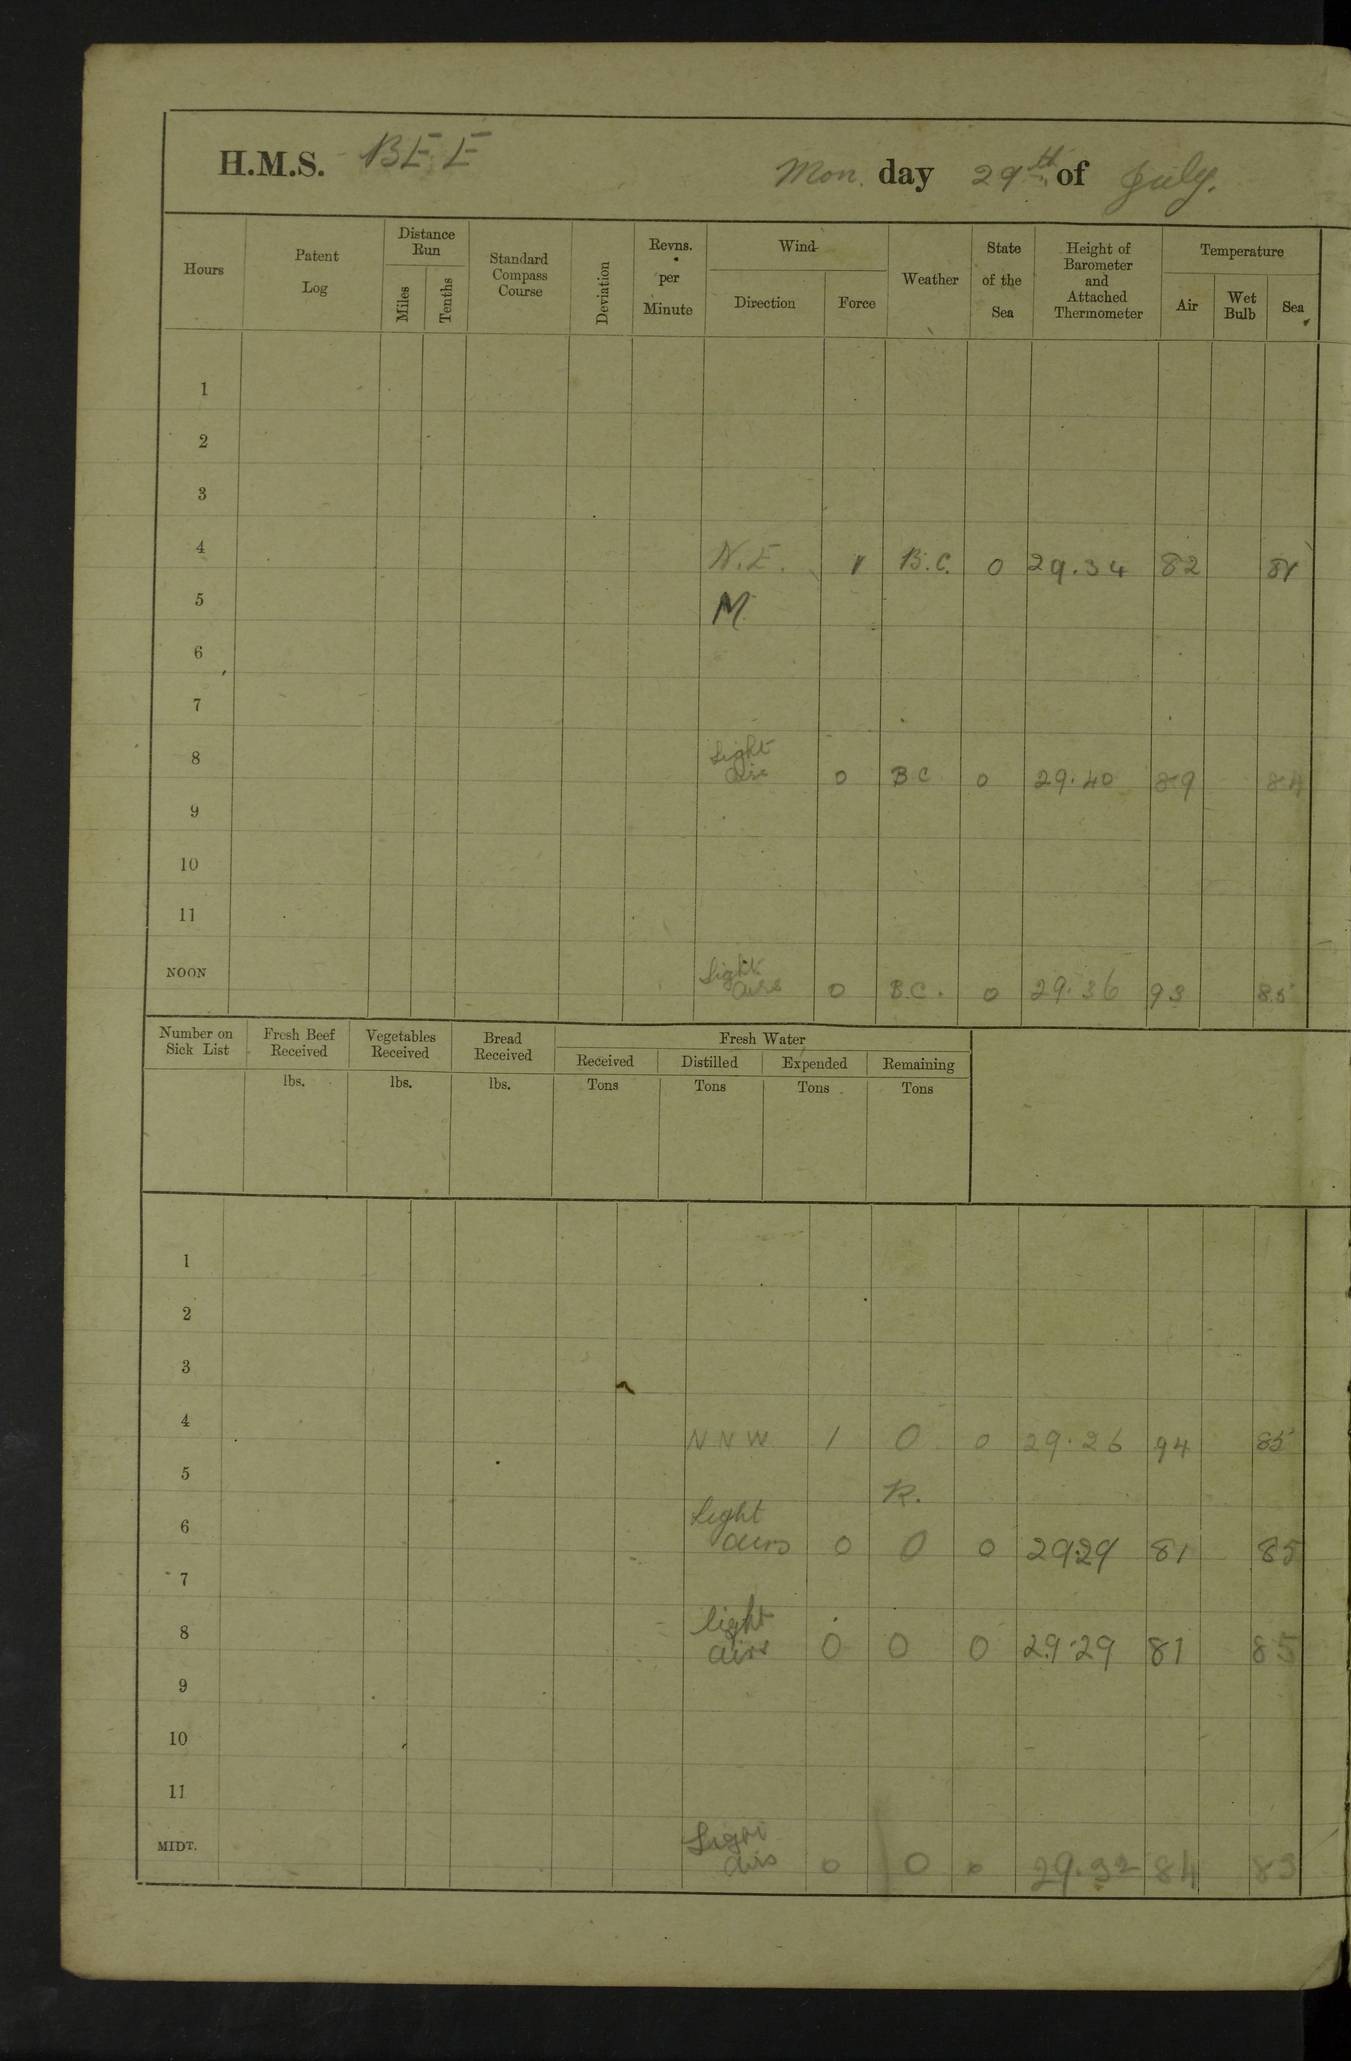 H.M.S. BEE Mon. day 29th of July.
Hours Patent Log Distance Run Miles Tenths Standard Compass Course Deviation Revns. per Minute Wind Direction Force Weather State of the Sea Height of Barometer and Attached Thermometer Temperature Air Wet Bulb Sea
1
2
3
4 N.E. 1 B.C. 0 29.34 82 81
5 M
6
7
8 Light airs 0 BC 0 29.40 89 84
9
10
11
NOON Light airs 0 B.C. 0 29.36 93 85
Number on Sick List Fresh Beef Received Vegetables Received Bread Received Fresh Water
Received Distilled Expended Remaining
lbs. lbs. lbs. Tons Tons Tons Tons
1
2
3
4 NNW 1 O 0 29.26 94 85
5 R.
6 Light airs 0 O 0 29.29 81 85
7
8 light airs 0 0 0 29.29 81 85
9
10
11
MIDT. Light airs 0 O 0 29.32 84 83